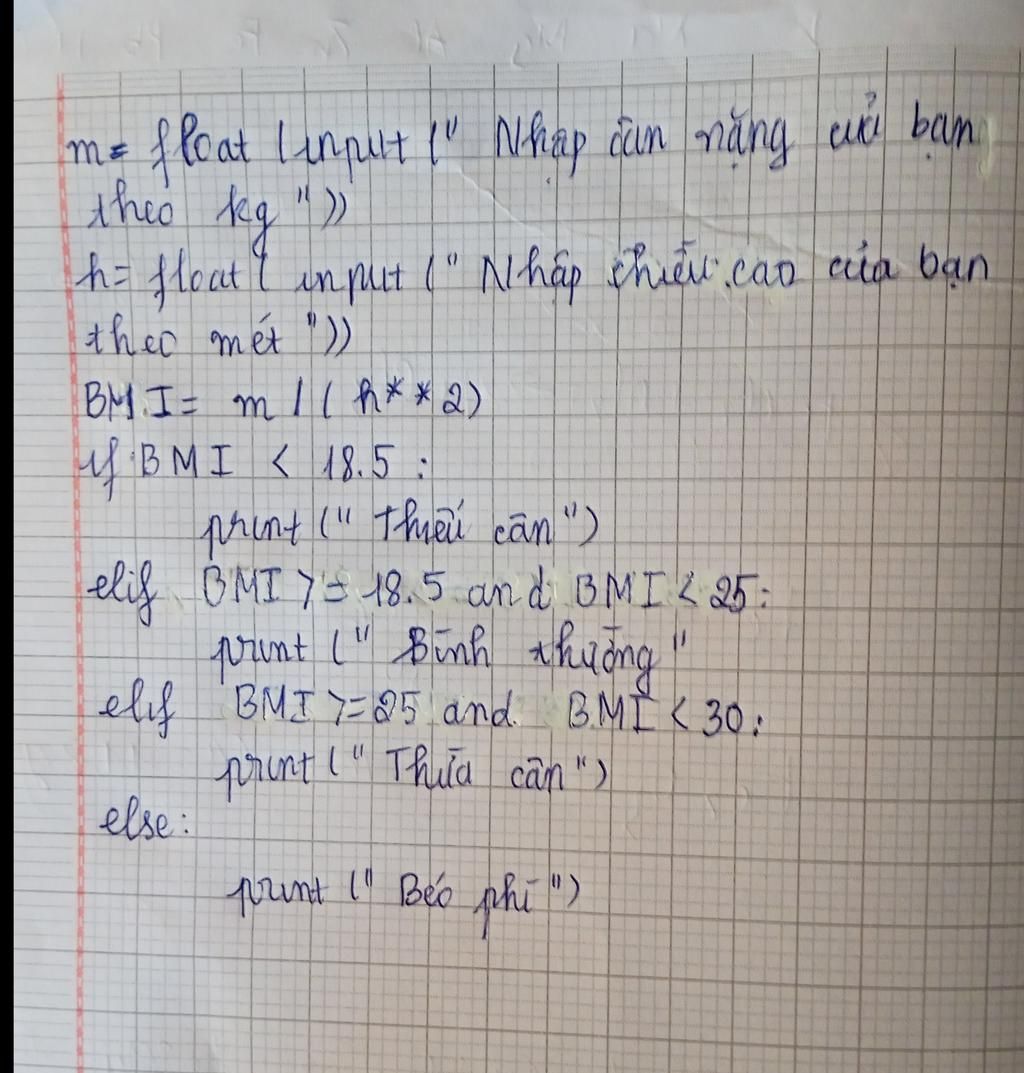 m= float (input (" Nhập cân nặng của bạn
theo kg "))
h= float ( input (" Nhập chiều cao của bạn
theo mét "))
BMI= m / ( h**2)
if BMI < 18.5 :
print (" Thiếu cân")
elif BMI >= 18.5 and BMI < 25:
print (" Bình thường"
elif BMI >=25 and BMI < 30:
print (" Thừa cân")
else:
print (" Béo phì ")